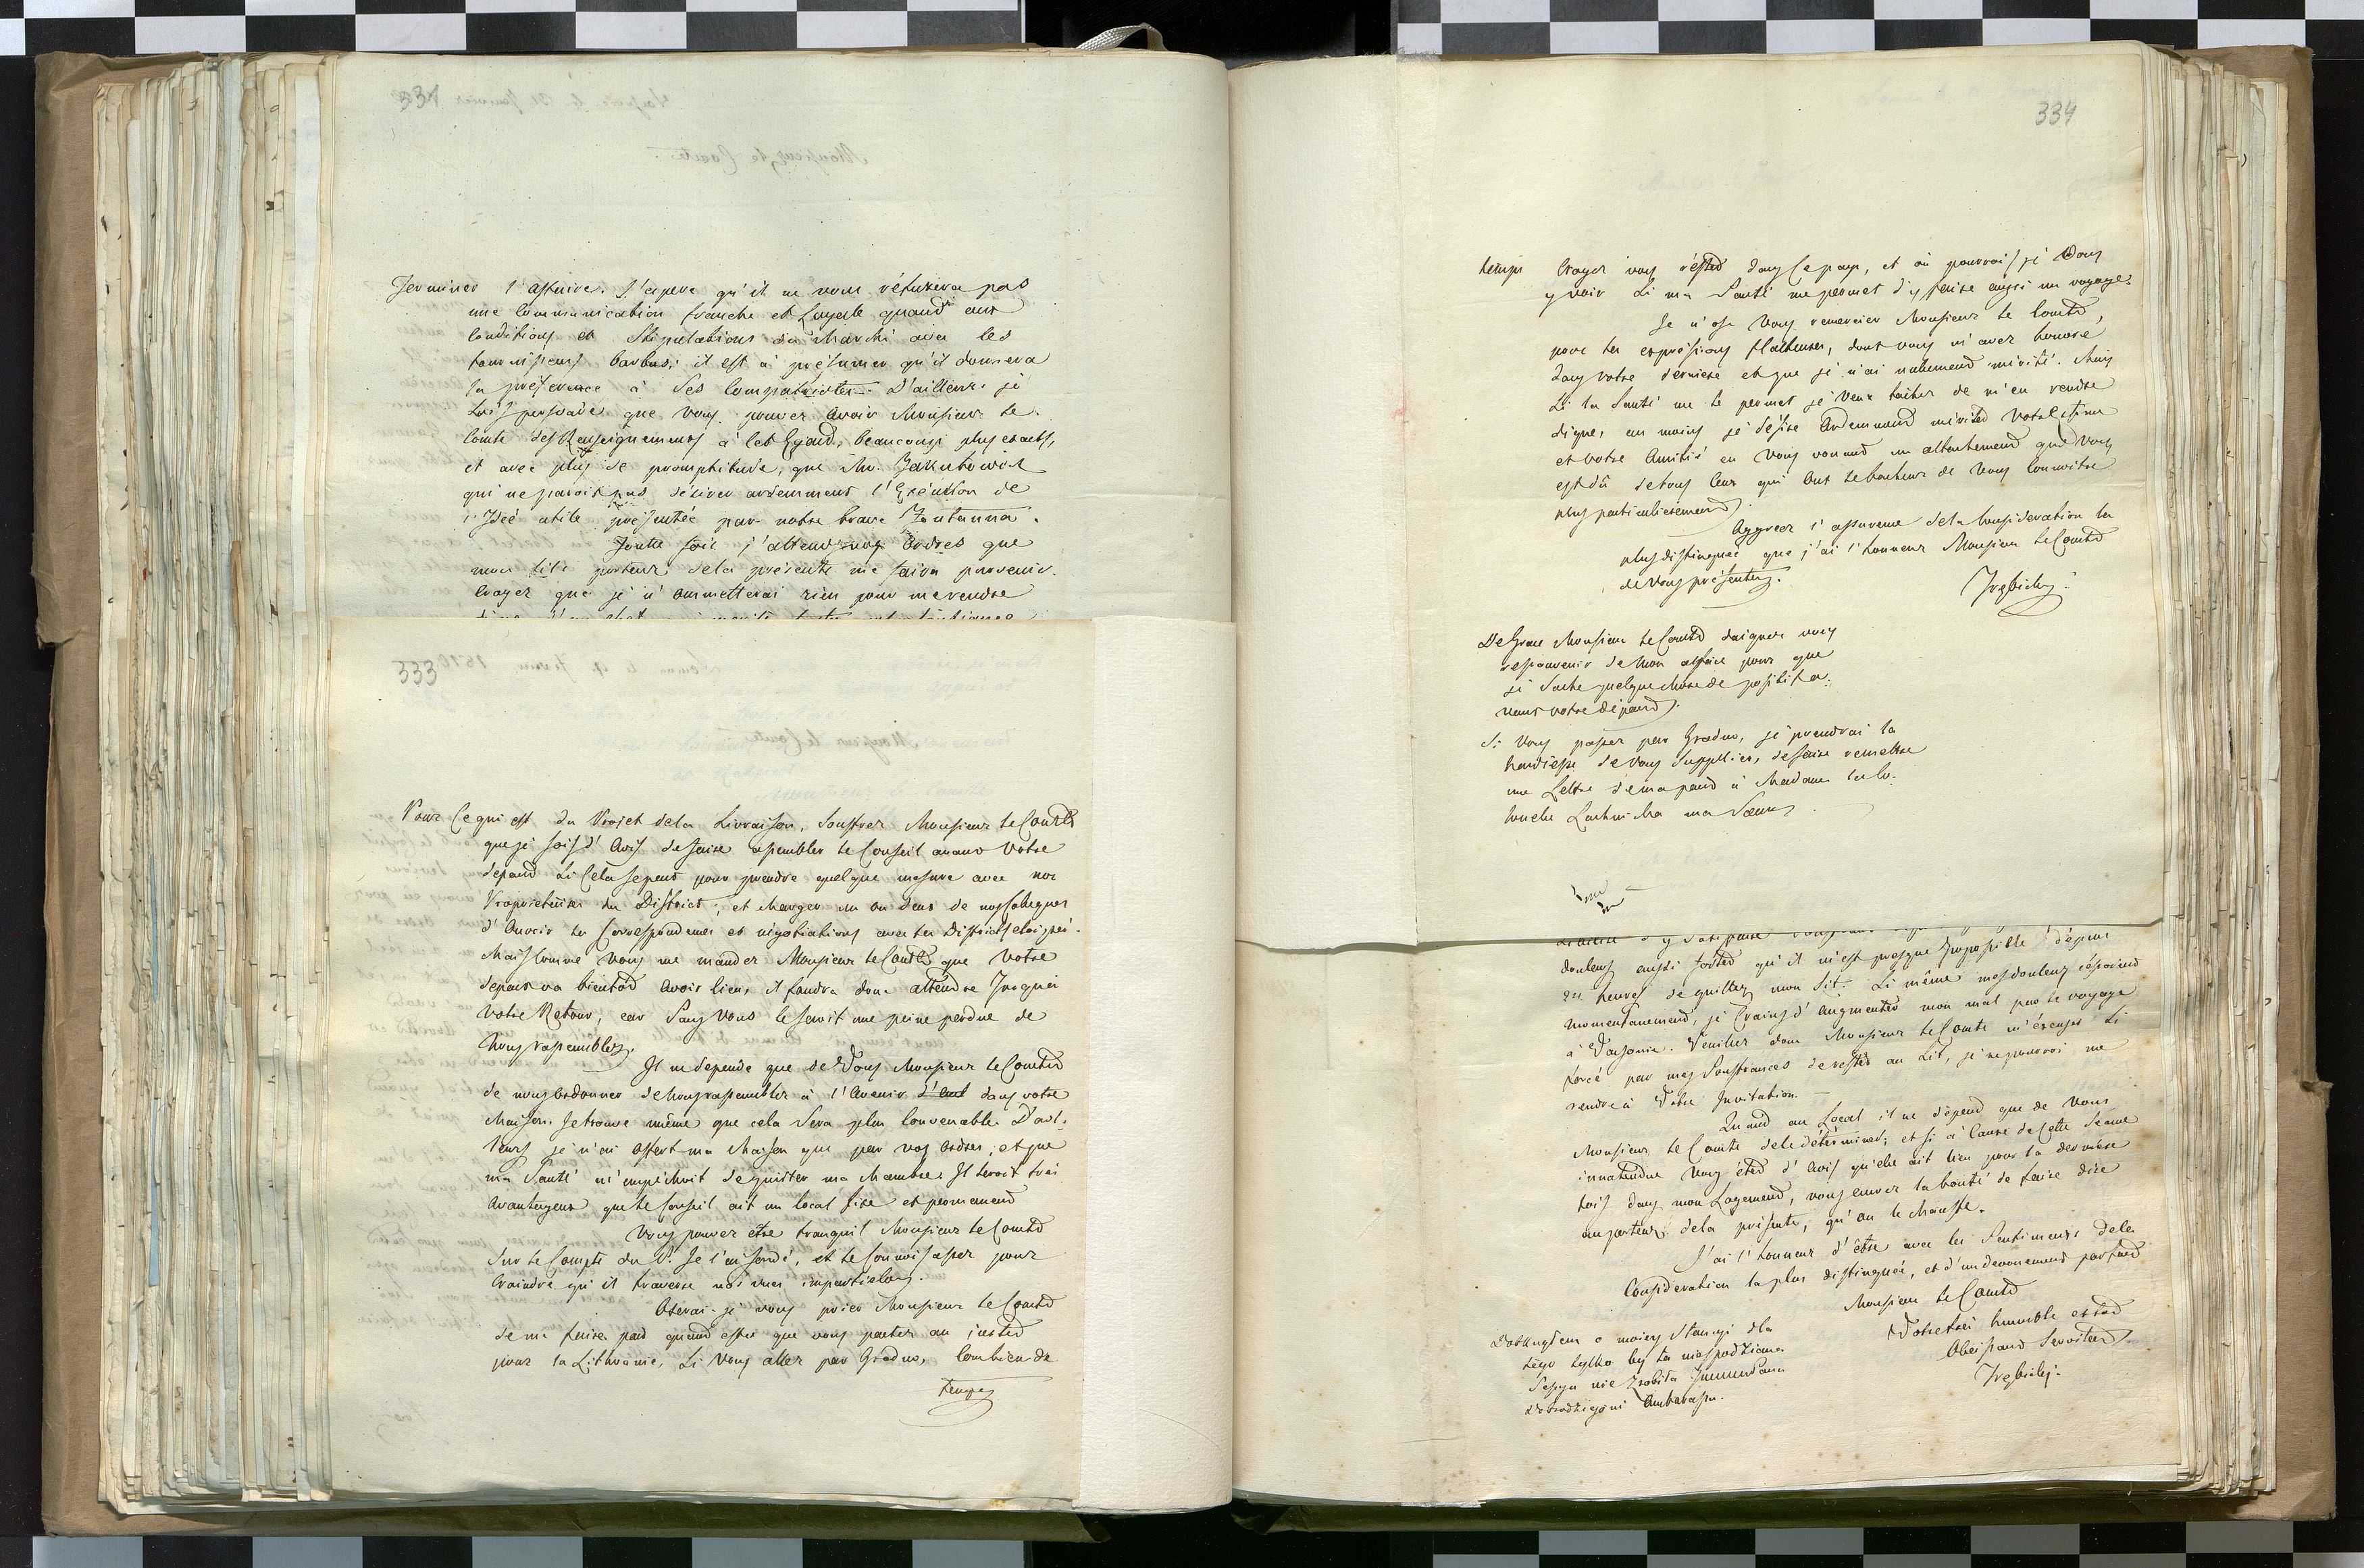 331
Terminer l'affaire. J'espere qu'il ne vous réfusera pas
une Communication franche et Loyale quand aux
Conditions et Stipulations du Marché avec les
fournisseurs barbus; il est à présumer qu'il donnera
la préference à Ses Compatriotes. D'ailleurs je
Suis persuadé que Vous pouvez Avoir Monsieur le
Comte des Renseignemens à Cet Egard, beaucoup plus exacts,
et avec plus de promptitude, que Mr. Jakubowicz
qui ne parois pas désirer ardemment l'Exécution de
l'Idée utile présentée par notre brave Fontanna.
Toute fois j'attends vos Ordres que
mon fils porteur de la présente me faira parvenir.
Croyez que je n'ommetterai rien pour me rendre
333
Pour Ce qui est du Projet de la Livraison, Souffrez Monsieur le Comte
que je sois d'Avis de faire assembler le Conseil avant Votre
départ Si Cela Se peut pour prendre quelque mesure avec nos
Proprietaires du District; et charger un ou deux de nos Collegues
d'Ouvrir les Correspondences et négotiations avec les Districts eloignés.
Mais Comme Vous me mandez Monsieur le Comte que Votre
depart va bientôt Avoir lieu, il faudra donc attendre Jusqu'à
Votre Retour, car Sans Vous Ce seroit une peine perdue de
Nous rassembler.
Il ne depende que de Vous Monsieur le Comte
de nous Ordonner de Nous rassembler à l'Avenir dans votre
Maison. Je trouve même que cela Sera plus Convenable. D'ail-
leurs je n'ai offert ma Maison que par vos Ordres, et que
ma Santé m'empêchoit de quitter ma Chambre. Il seroit trés
Avantageux que le Conseil ait un local fixe et permanend
Vous pouvez être tranquil Monsieur le Comte
Sur le Compte du P. Je l'ai sondé, et le Connois assez pour
Craindre qu'il traverse nos vues impartiales.
Oserai-je vous prier Monsieur le Comte
de me faire part quand est-ce que vous partez au juste
pour la Lithuanie, Si Vous allez par Grodno, Combien de
temps
334
temps Croyez vous rester dans Ce pays, et où pourrois je Vous
y voir Si ma Santé me permet d'y faire aussi un voyage.
Je n'ose Vous remercier Monsieur le Comte,
pour les expressions flatteuses, dont vous m'avez honoré
dans Votre dérniere et que je n'ai nullement mérité. Mais
Si la Santé me le permet je Veux tacher de m'en rendre
digne, au moins je désire Ardemmend mériter Votre Estime
et Votre Amitié en Vous vouand un attachemend que Vous
est dû de tous Ceux qui Ont le bonheur de Vous Connoitre
plus particulierement.
Aggréez l'assurance de la Consideration la
plus distinguée que j'ai l'honneur Monsieur le Comte
de Vous présenter.
De Grace Monsieur le Comte daignez vous
ressouvenir de Mon affaire pour que
je Sache quelque chose de positif a-
vant votre départ.
Si Vous passez par Grodno, je prendrai la
hardiesse de Vous Supplier, de faire remettre
une Lettre de ma part à Madame
ma Soeur.
douleurs aussi fortes qu'il m'est presque Impossible dépuis
heures de quitter mon Lit. Si même mes douleurs
momentanemend, je Crains d'Augmenter mon mal par le voyage
à Varsovie. Veuillez donc Monsieur le Comte m'éxcuser Si
forcé par mes Souffrances de rester au Lit, je ne pourroi me
rendre à Votre Invitation.
Quand au Local il ne dépend que de Vous
Monsieur le Comte de le détérminer; et si à Cause de Cette Séance
innatendue Vous êtes d'Avis qu'elle ait lieu pour la derniere
fois dans mon Logemend, vous aurez la bonté de faire dire
au porteur de la présente, qu'on le Chauffe.
J'ai l'honneur d'être avec les Sentimens de la
Consideration la plus distinguée, et d'un devouement parfait
Monsieur le Comte
Votre trés humble et trés
Obéissand Serviteur
tego tylko by ta niespodziana
Sessya nie zrobiła
Ambarassu.